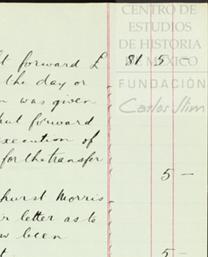 CENTRO DE
ESTUDIOS
DE HISTORIA
DE MÉXICO
FUNDACIÓN
Carlos Slim
forward £ 81 5 -
the day or
was given
put forward
execution of
for the transfer
5 -
hurst Morris
letter as to
been
5 -